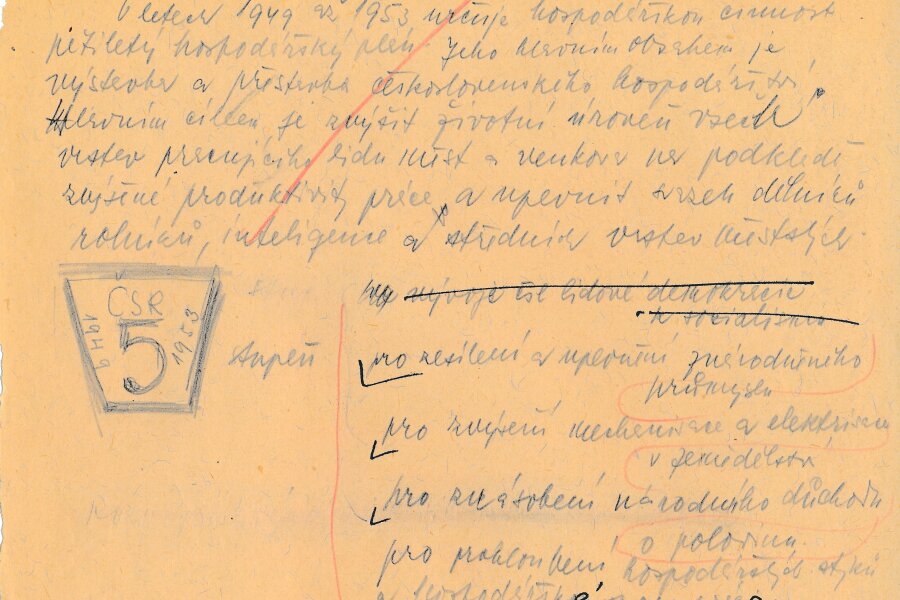 V letech 1949 až 1953 určuje hospodářskou činnost
pětiletý hospodářský plán. Jeho hlavním obsahem je
výstavba a přestavba československého hospodářství.
Hlavním cílem je zvýšit životní úroveň všech
vrstev pracujícího lidu měst a venkova na podkladě
zvýšené produktivity práce a upevnit svazek dělníků
rolníků, inteligence a středních vrstev městských.
vývoje čsl lidové demokracie
k socialismu
ČSR
1949 5 1953
stupeň
pro zesílení a upevnění znárodněného
průmyslu
pro zvýšení mechanisace a elektrisace
v zemědělství
pro znásobení národního důchodu
o polovinu.
pro prohloubení hospodářských styků
a hospodářské